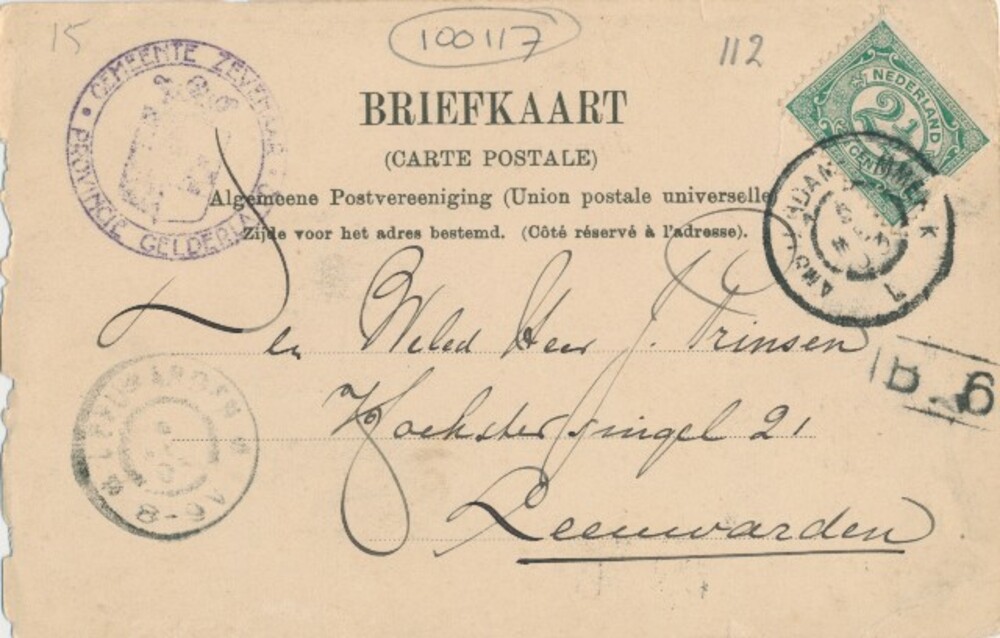 15
100117
112
GEMEENTE ZEVENAAR • PROVINCIE GELDERLAND •
BRIEFKAART
(CARTE POSTALE)
Algemeene Postvereeniging (Union postale universelle)
Zijde voor het adres bestemd. (Côté réservé à l'adresse).
NEDERLAND
2½
CENT
AMSTERDAM EMMERIK
1
Den Weled Heer J. Prinsen
Hoeksstersingel 21
Leeuwarden
LEEUWARDEN
8-9V
B. 6